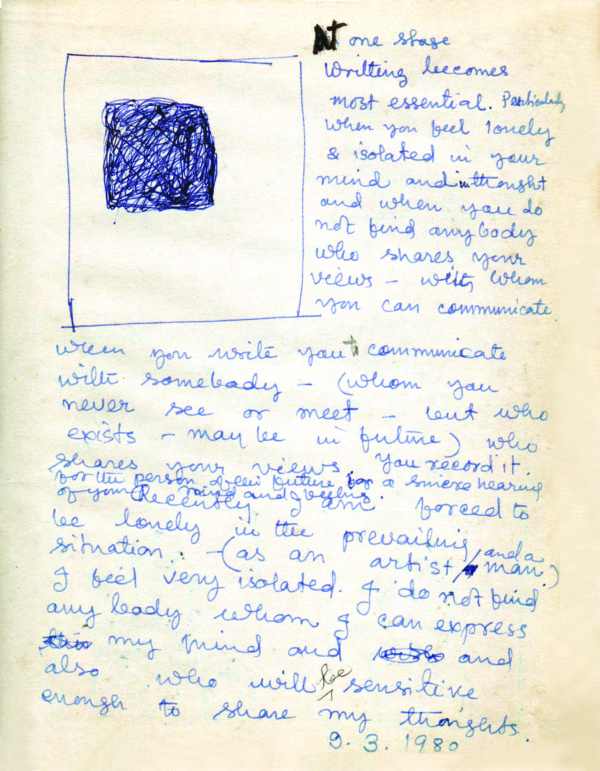 At one stage
writting becomes
most essential. Perticularly
when you feel lonely
& isolated in your
mind and in thought
and when you do
not find anybody
who shares your
views – with whom
you can communicate
when you write you communicate
with somebady – (whom you
never see or meet – but who
exists – may be in future) who
shares your views. you record it.
for the person of in future for a sincere hearing
of your mind and feelins.
(Recently I am forced to
be lonely in the prevailing
situation – (as an artist and a
man.)
I feel very isolated. I do not find
any body whom I can express
my mind and and
also who will be sensitive
enough to share my thoughts.
9.3.1980